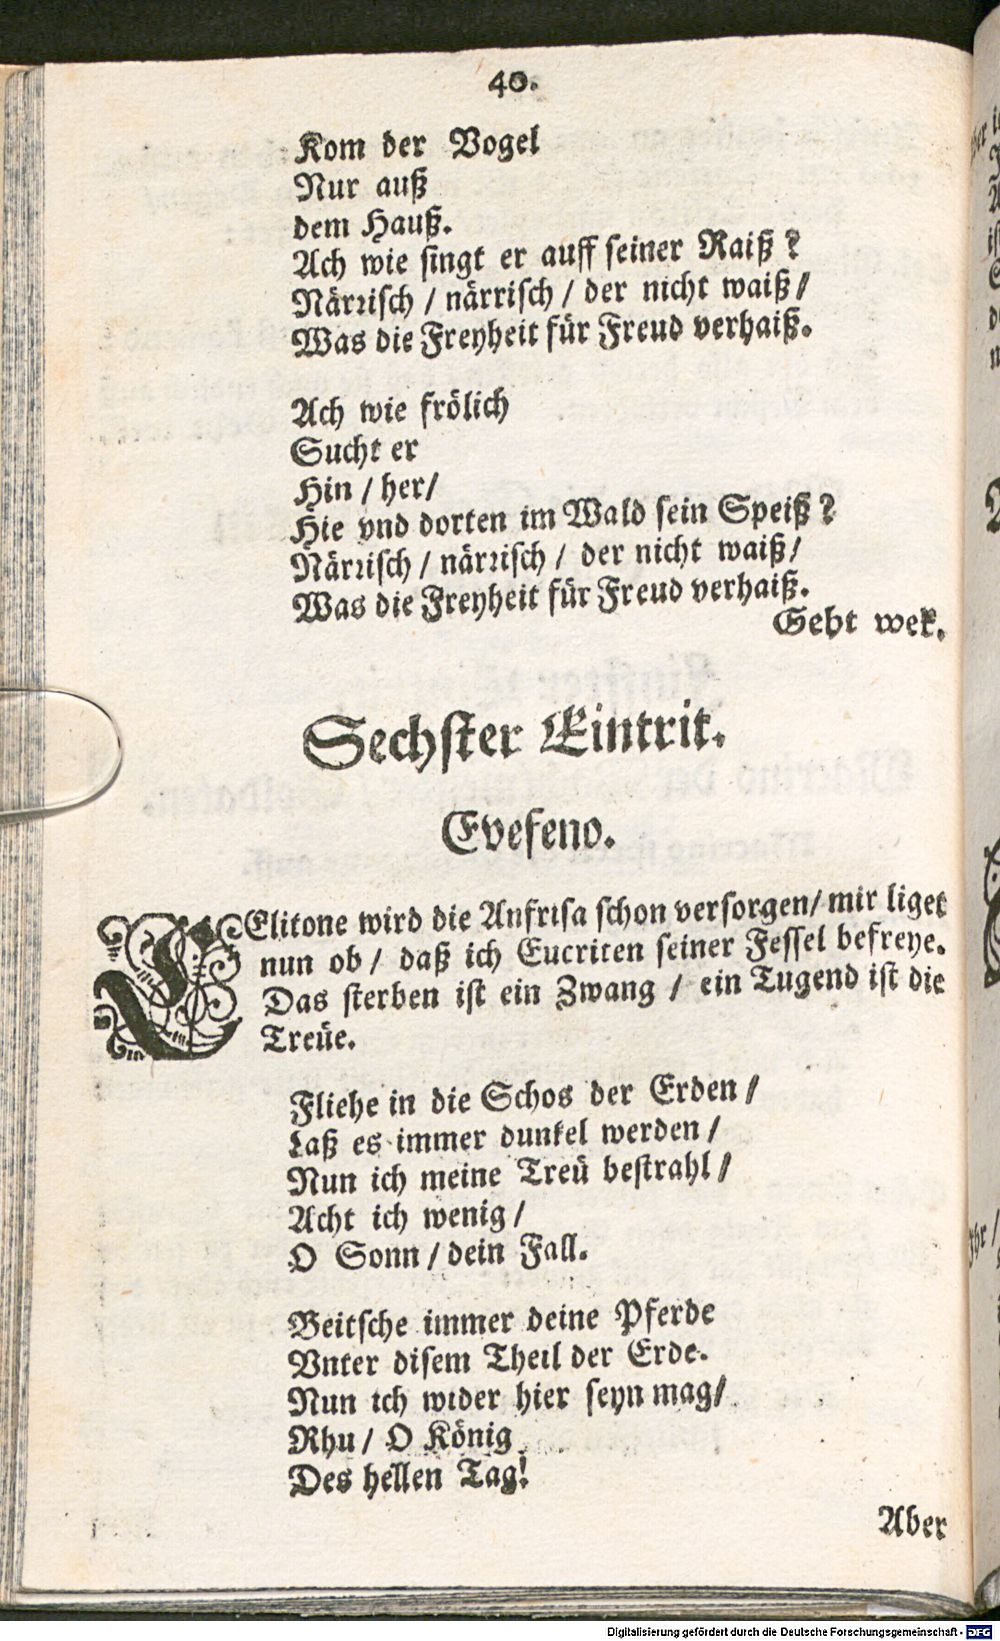 40.
Kom der Vogel
Nur auß
dem Hauß.
Ach wie singt er auff seiner Raiß?
Närrisch / närrisch / der nicht waiß /
Was die Freyheit für Freud verhaiß.
Ach wie frölich
Sucht er
Hin / her /
Hie vnd dorten im Wald sein Speiß?
Närrisch / närrisch / der nicht waiß /
Was die Freyheit für Freud verhaiß.
Geht wek.
Sechster Eintrit.
Evefeno.
VElitone wird die Anfrisa schon versorgen / mir liget
nun ob / daß ich Eucriten seiner Fessel befreye.
Das sterben ist ein Zwang / ein Tugend ist die
Treüe.
Fliehe in die Schos der Erden /
Laß es immer dunkel werden /
Nun ich meine Treü bestrahl /
Acht ich wenig /
O Sonn / dein Fall.
Beitsche immer deine Pferde
Vnter disem Theil der Erde.
Nun ich wider hier seyn mag /
Rhu / O König
Des hellen Tag!
Aber
Digitalisierung gefördert durch die Deutsche Forschungsgemeinschaft - DFG